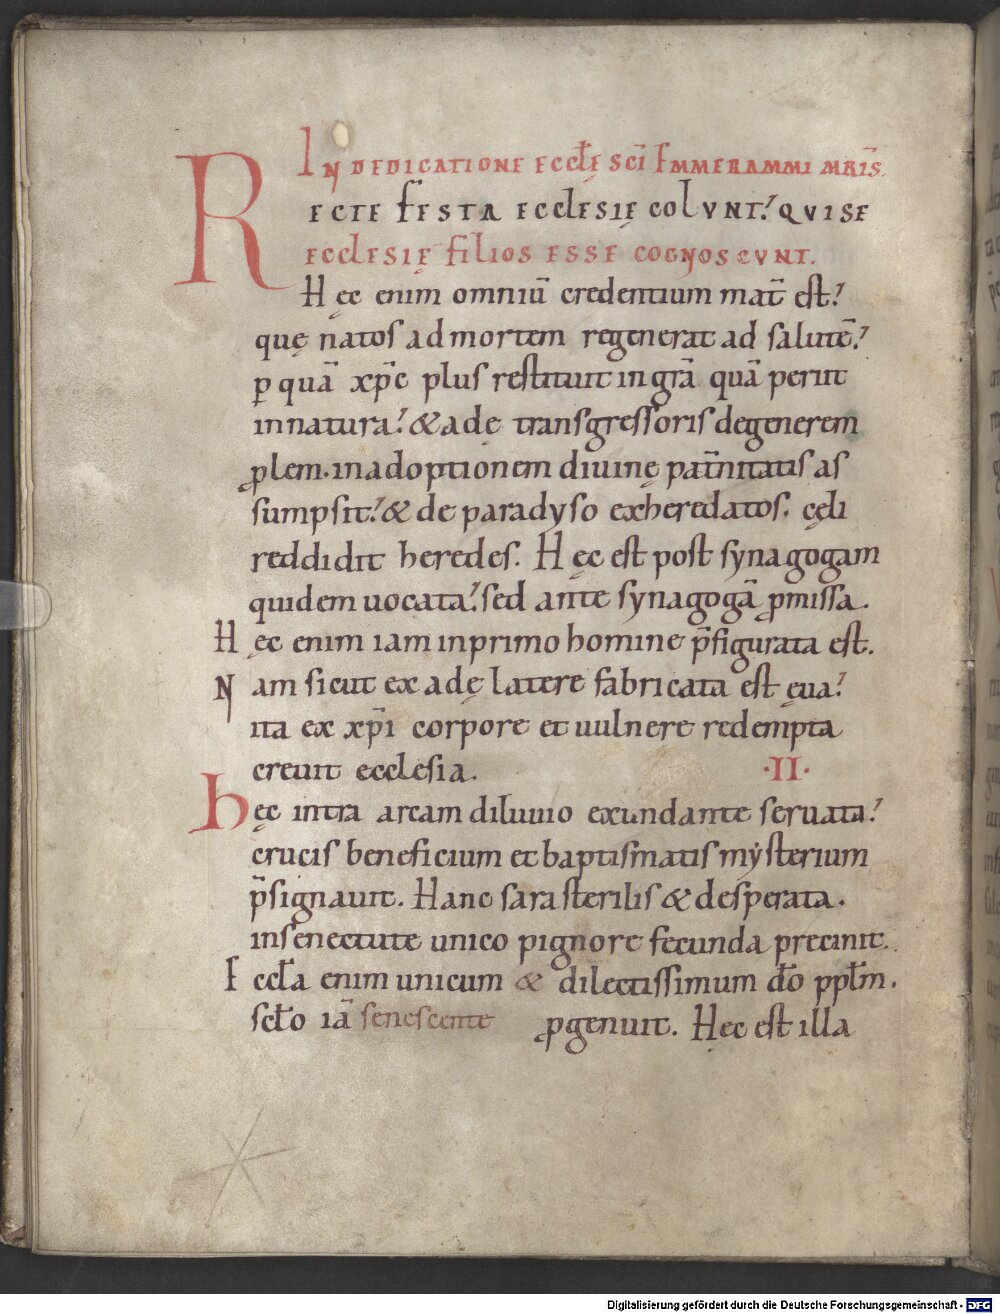 IN DEDICATIONE ECCLĘ SCĪ EMMERAMMI MRĪS.
RECTE FESTA ECCLESIĘ COLUNT? QUI SE
ECCLESIĘ FILIOS ESSE COGNOSCUNT.
Hęc enim omniū credentium mat̄ est?
quę natos ad mortem regenerat ad salutē?
ꝑ quā xp̄c plus restituit in gr̄a quā perit
in natura? & adę transgressoris degenerem
ꝓlem· in adoptionem diuinę pat̄nitatis as
sumpsit? & de paradyso exheredatos. cęli
reddidit heredes. Hęc est post synagogam
quidem uocata? sed ante synagogā ꝓmissa.
Hęc enim iam in primo homine p̄figurata est.
Nam sicut ex adę latere fabricata est ęua?
ita ex xp̄i corpore et uulnere redempta
creuit ecclesia. ·II·
hęc intra arcam diluuio exundante seruata?
crucis beneficium et baptismatis mẏsterium
p̄signauit. Hanc sara sterilis & desperata·
in senectute unico pignore fecunda precinit.
Eccła enim unicum & dilectissimum dō ppłm.
scło iā senescente ꝓgenuit. Hęc est illa
Digitalisierung gefördert durch die Deutsche Forschungsgemeinschaft - DFG